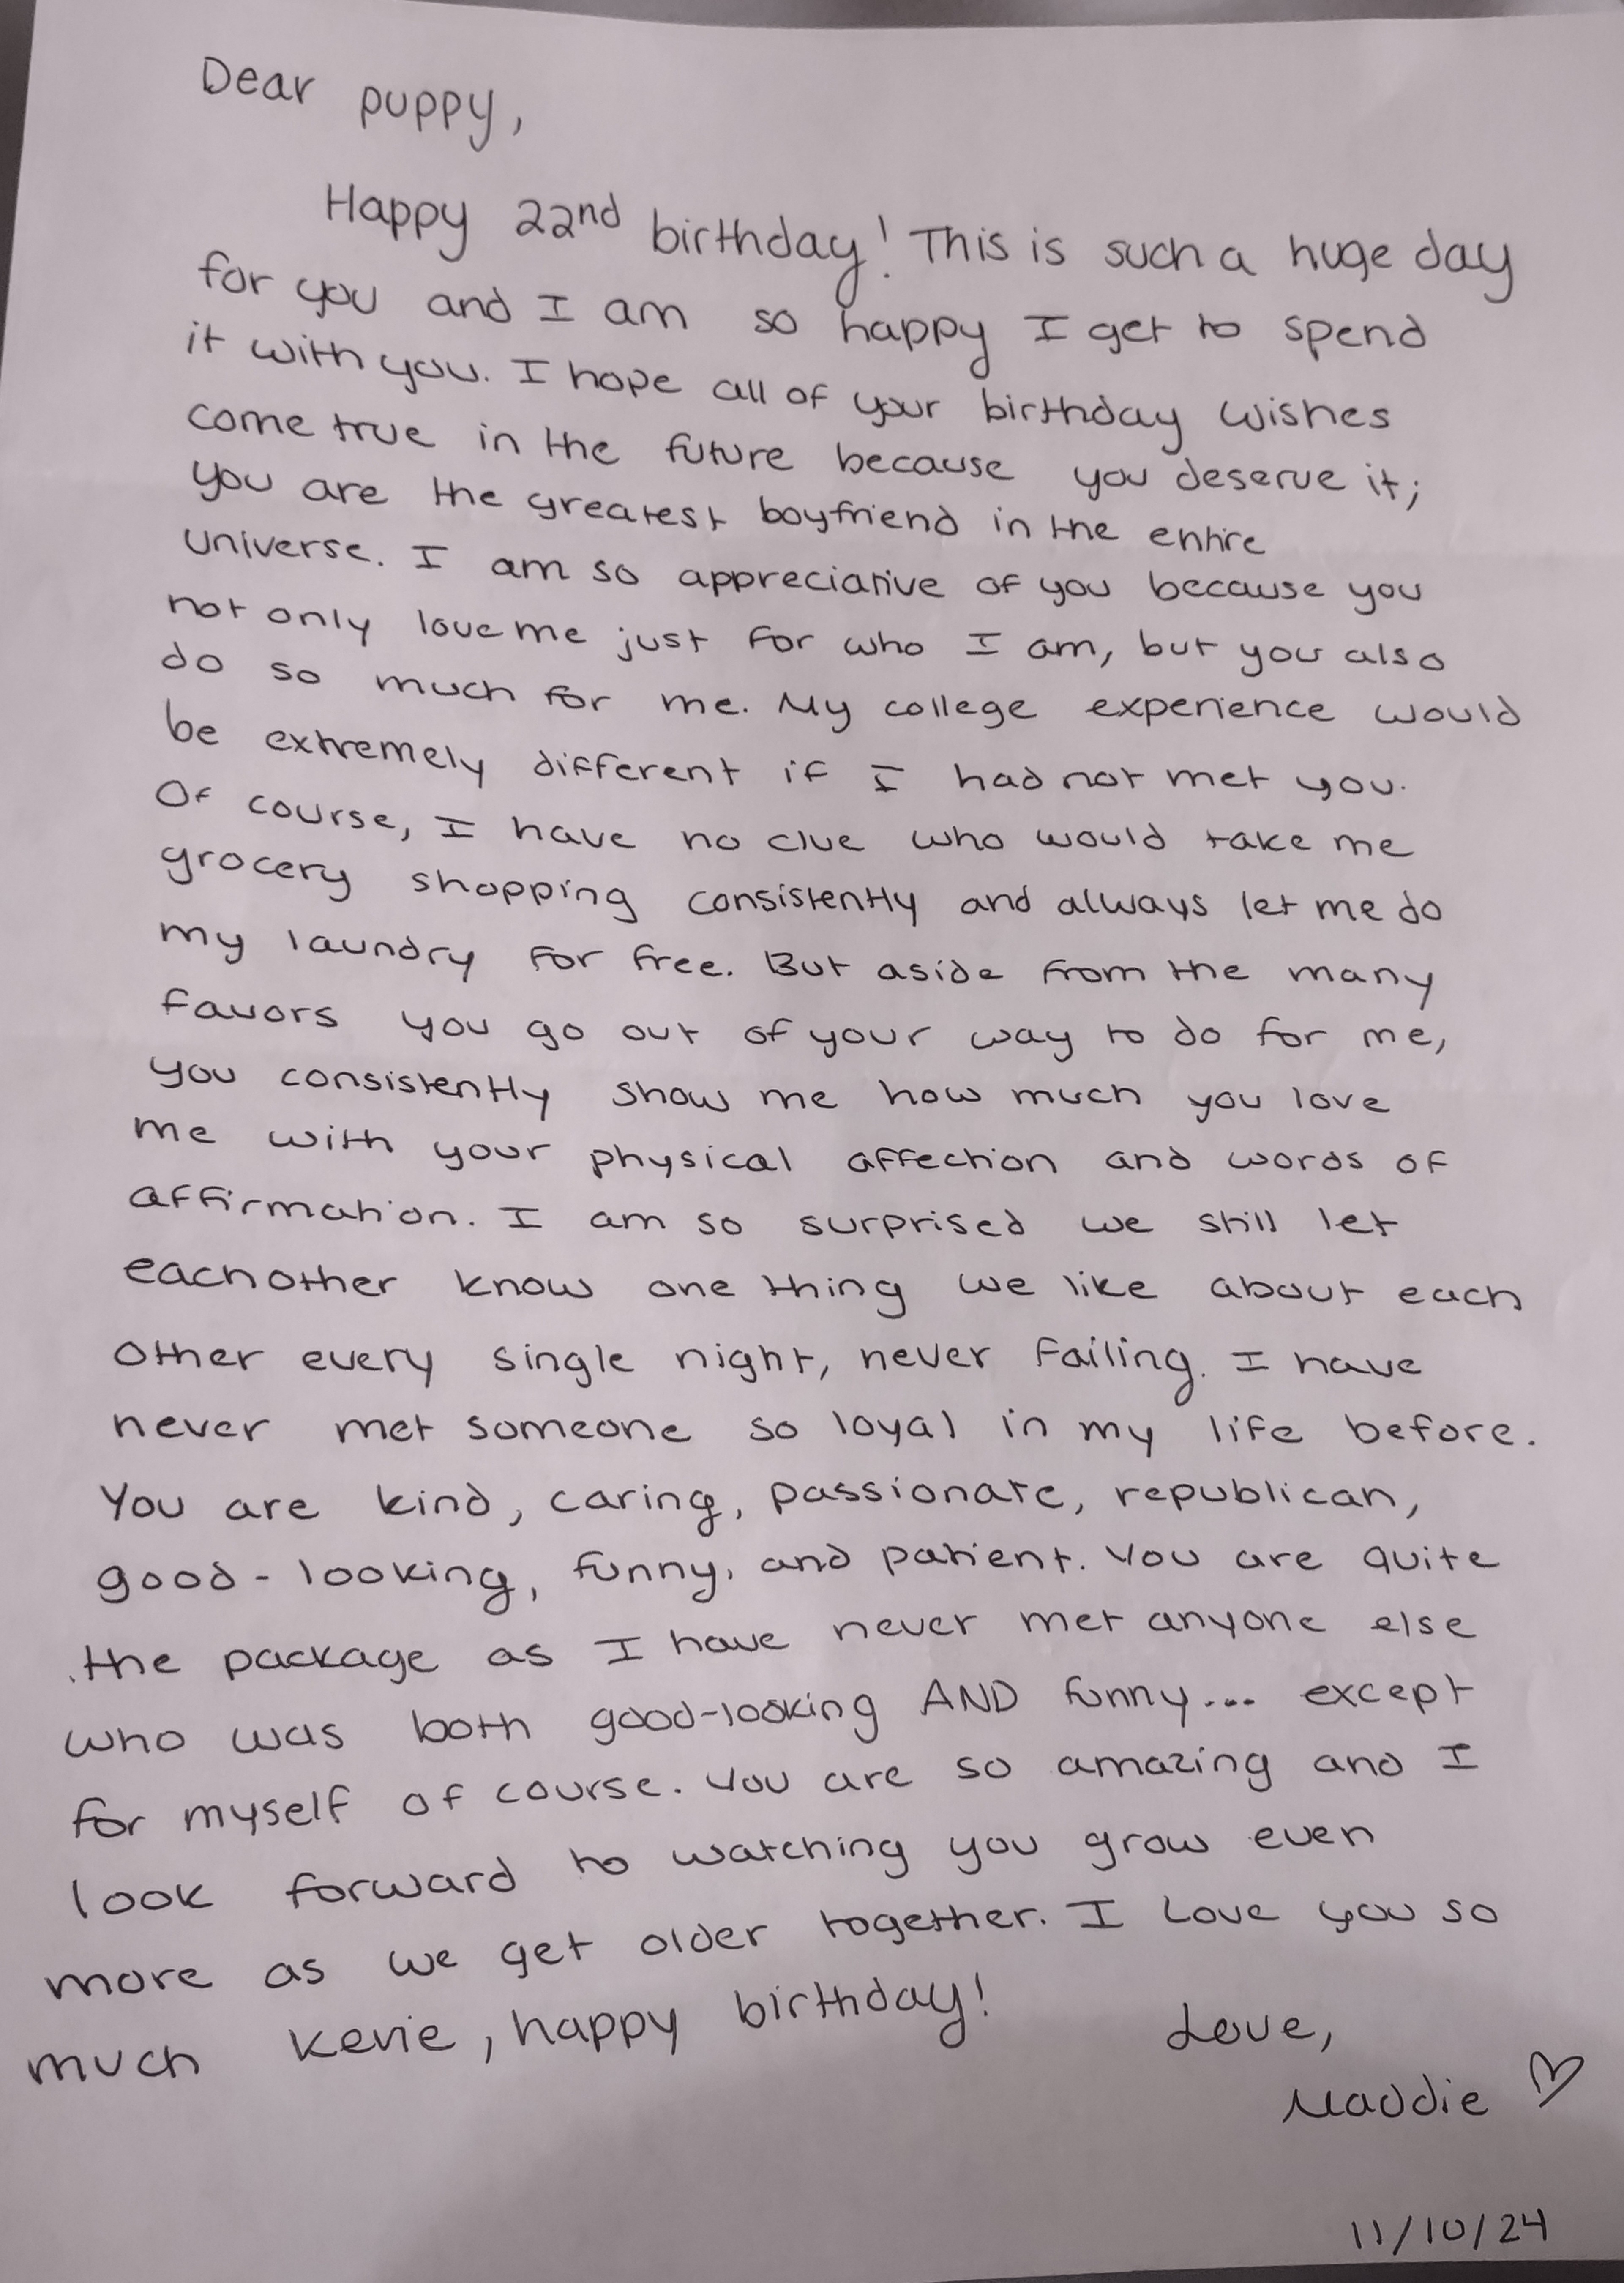 Dear puppy,
Happy 22nd birthday! This is such a huge day
for you and I am so happy I get to spend
it with you. I hope all of your birthday wishes
come true in the future because you deserve it;
you are the greatest boyfriend in the entire
universe. I am so appreciative of you because you
not only love me just for who I am, but you also
do so much for me. My college experience would
be extremely different if I had not met you.
Of course, I have no clue who would take me
grocery shopping consistently and always let me do
my laundry for free. But aside from the many
favors you go out of your way to do for me,
you consistently show me how much you love
me with your physical affection and words of
affirmation. I am so surprised we still let
eachother know one thing we like about each
other every single night, never failing. I have
never met someone so loyal in my life before.
You are kind, caring, passionate, republican,
good-looking, funny, and patient. You are quite
the package as I have never met anyone else
who was both good-looking AND funny... except
for myself of course. You are so amazing and I
look forward to watching you grow even
more as we get older together. I love you so
much Kevie, happy birthday!
Love,
Maddie ♡
11/10/24